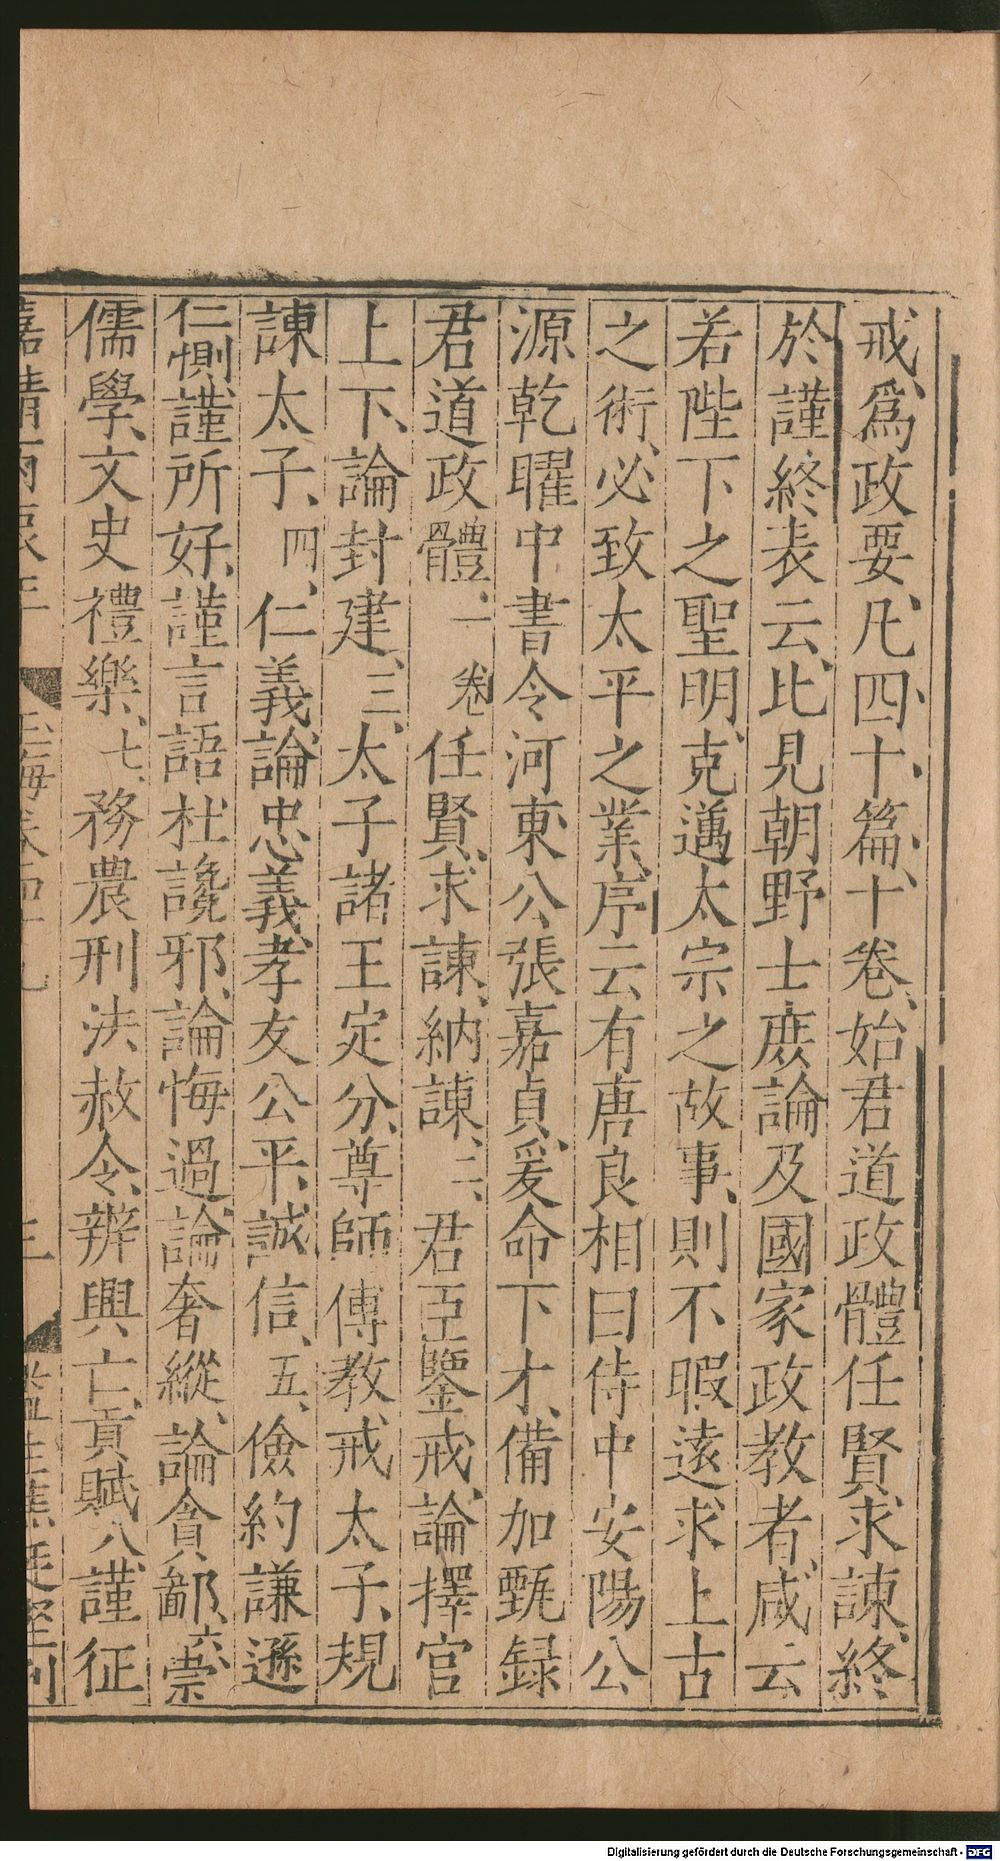 戒、爲政要、凡四十篇、十卷、始君道政體任賢求諫、終
於謹終表云、比見朝野士庶論及國家政教者、咸云
若陛下之聖明、克邁太宗之故事、則不暇遠求上古
之術、必致太平之業、序云有唐良相曰侍中安陽公
源乾曜中書令河東公張嘉貞、爰命下才、備加甄録
君道政體、一卷任賢、求諫、納諫、二、君臣鑒戒、論擇官
上下、論封建、三、太子諸王定分、尊師傅教戒太子、規
諫太子、四、仁義、論忠義、孝友公平、誠信、五、儉約謙遜
仁惻、謹所好、謹言語杜讒邪、論悔過、論奢縱、論貪鄙、六、崇
儒學、文史禮樂、七、務農刑法、赦令、辨興亡、貢賦、八、謹征
嘉靖丙辰年 玉海卷四十九 監生蕉廷堅刊
Digitalisierung gefördert durch die Deutsche Forschungsgemeinschaft - DFG